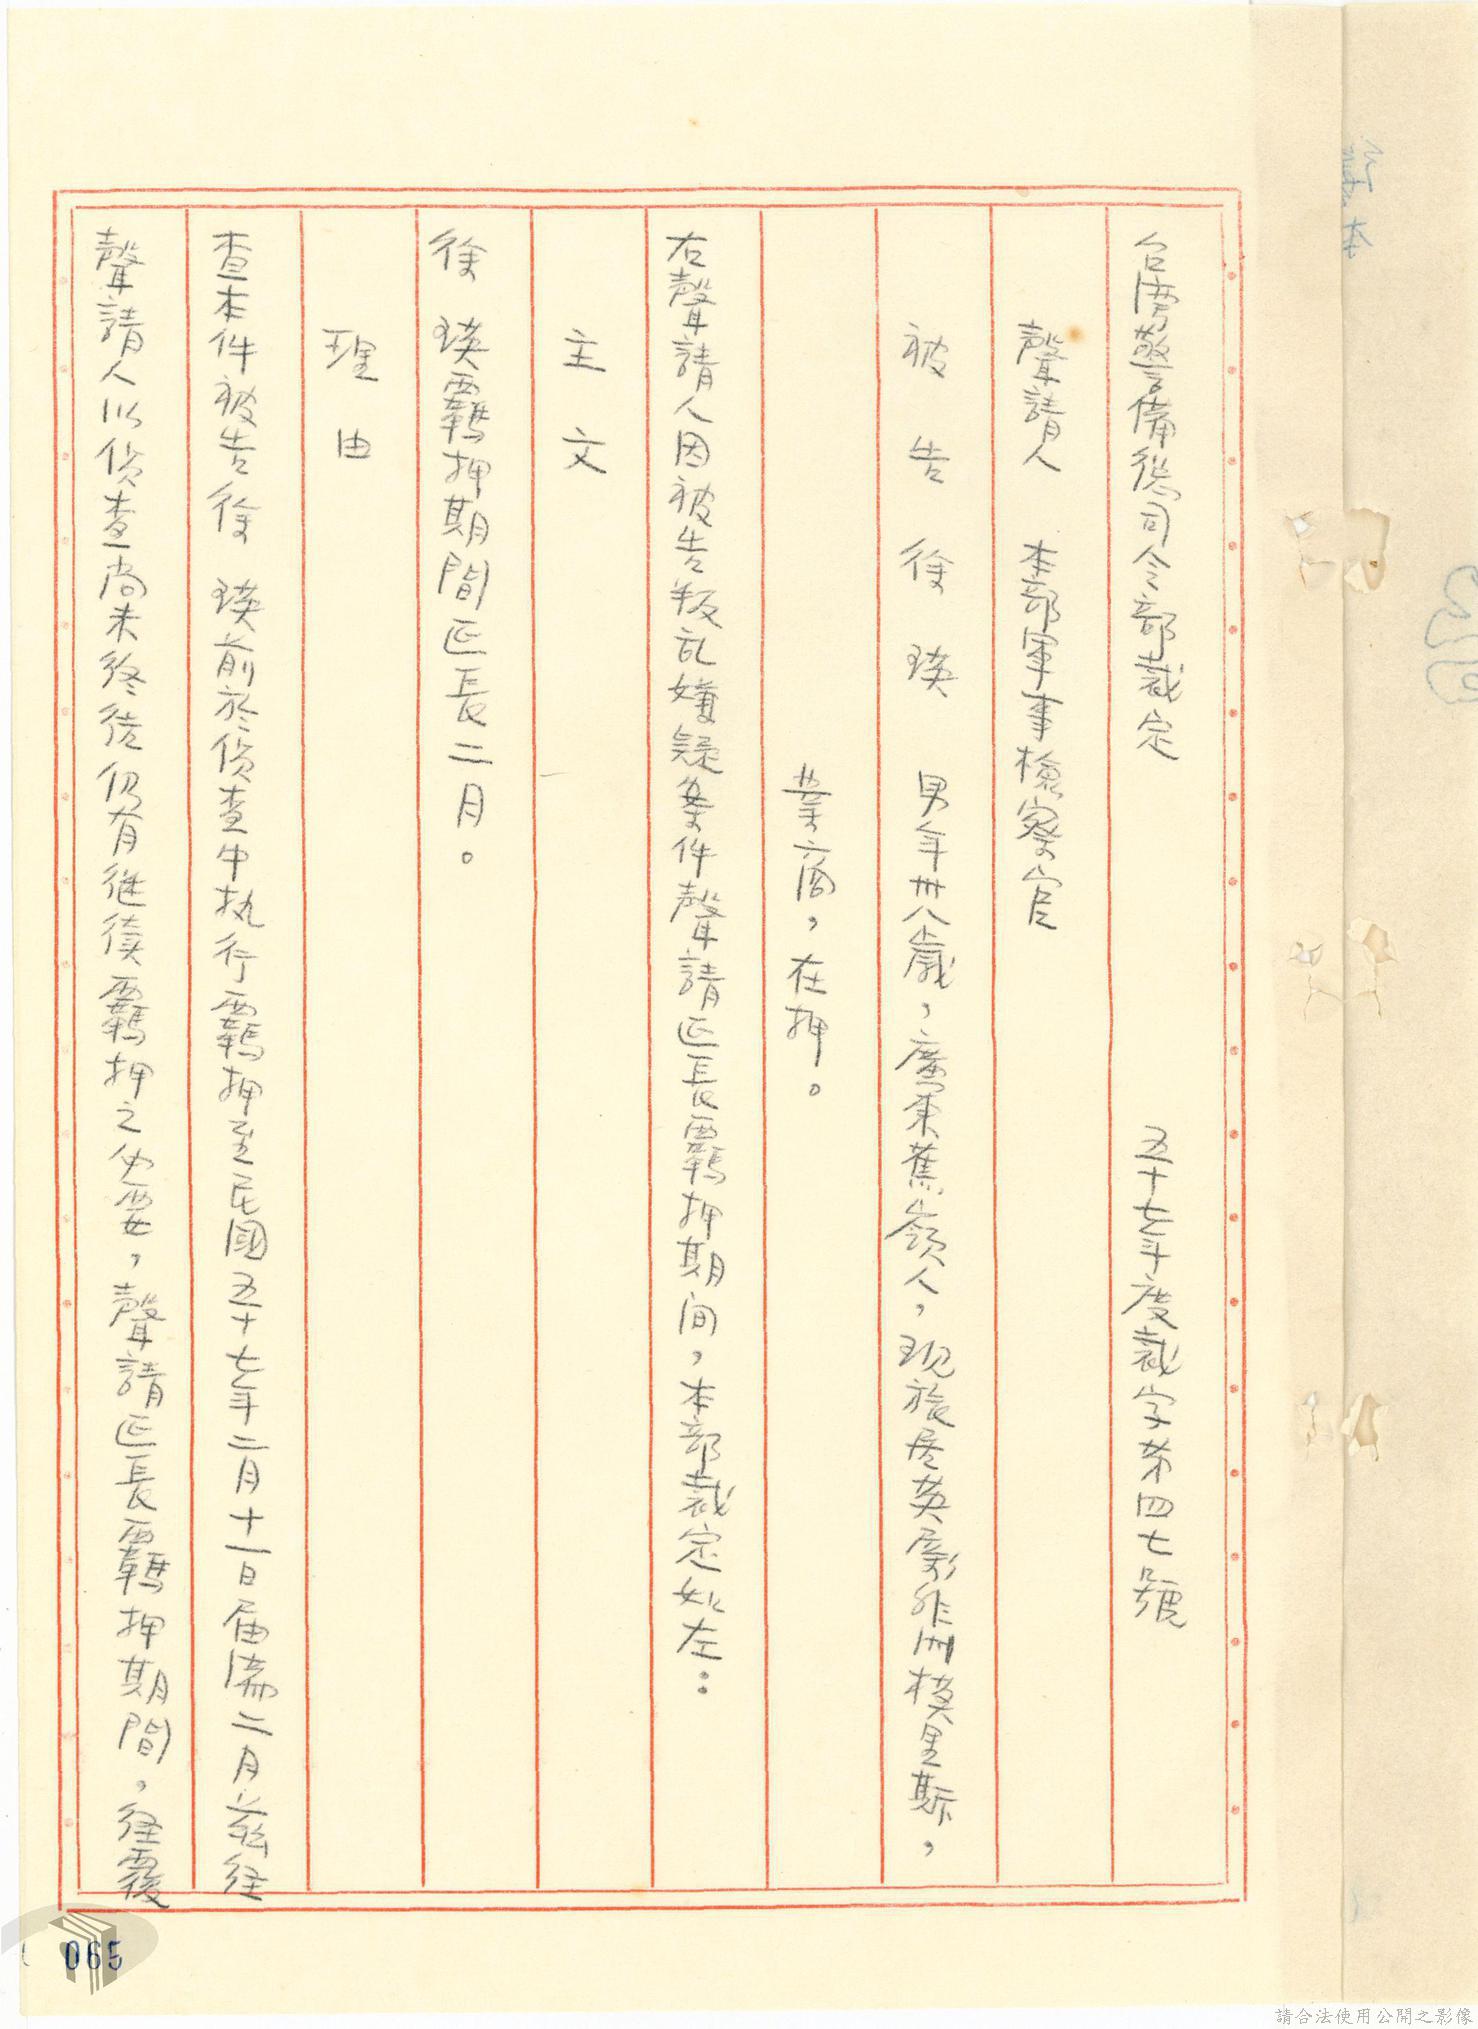 台湾警備總司令部裁定 五十七年度裁字第四七號
聲請人 本部軍事檢察官
被告 徐 瑛 男年卅八歲，廣東蕉嶺人，現旅居英屬非洲模里斯，
業商，在押。
右聲請人因被告叛乱嫌疑案件聲請延長羈押期间，本部裁定如左：
主文
徐 瑛羈押期間延長二月。
理由
查本件被告徐 瑛前於偵查中執行羈押至民國五十七年二月十一日届滿二月茲経
聲請人以偵查尚未終結仍有继續羈押之必要，聲請延長羈押期間，経覆
065
請合法使用公開之影像